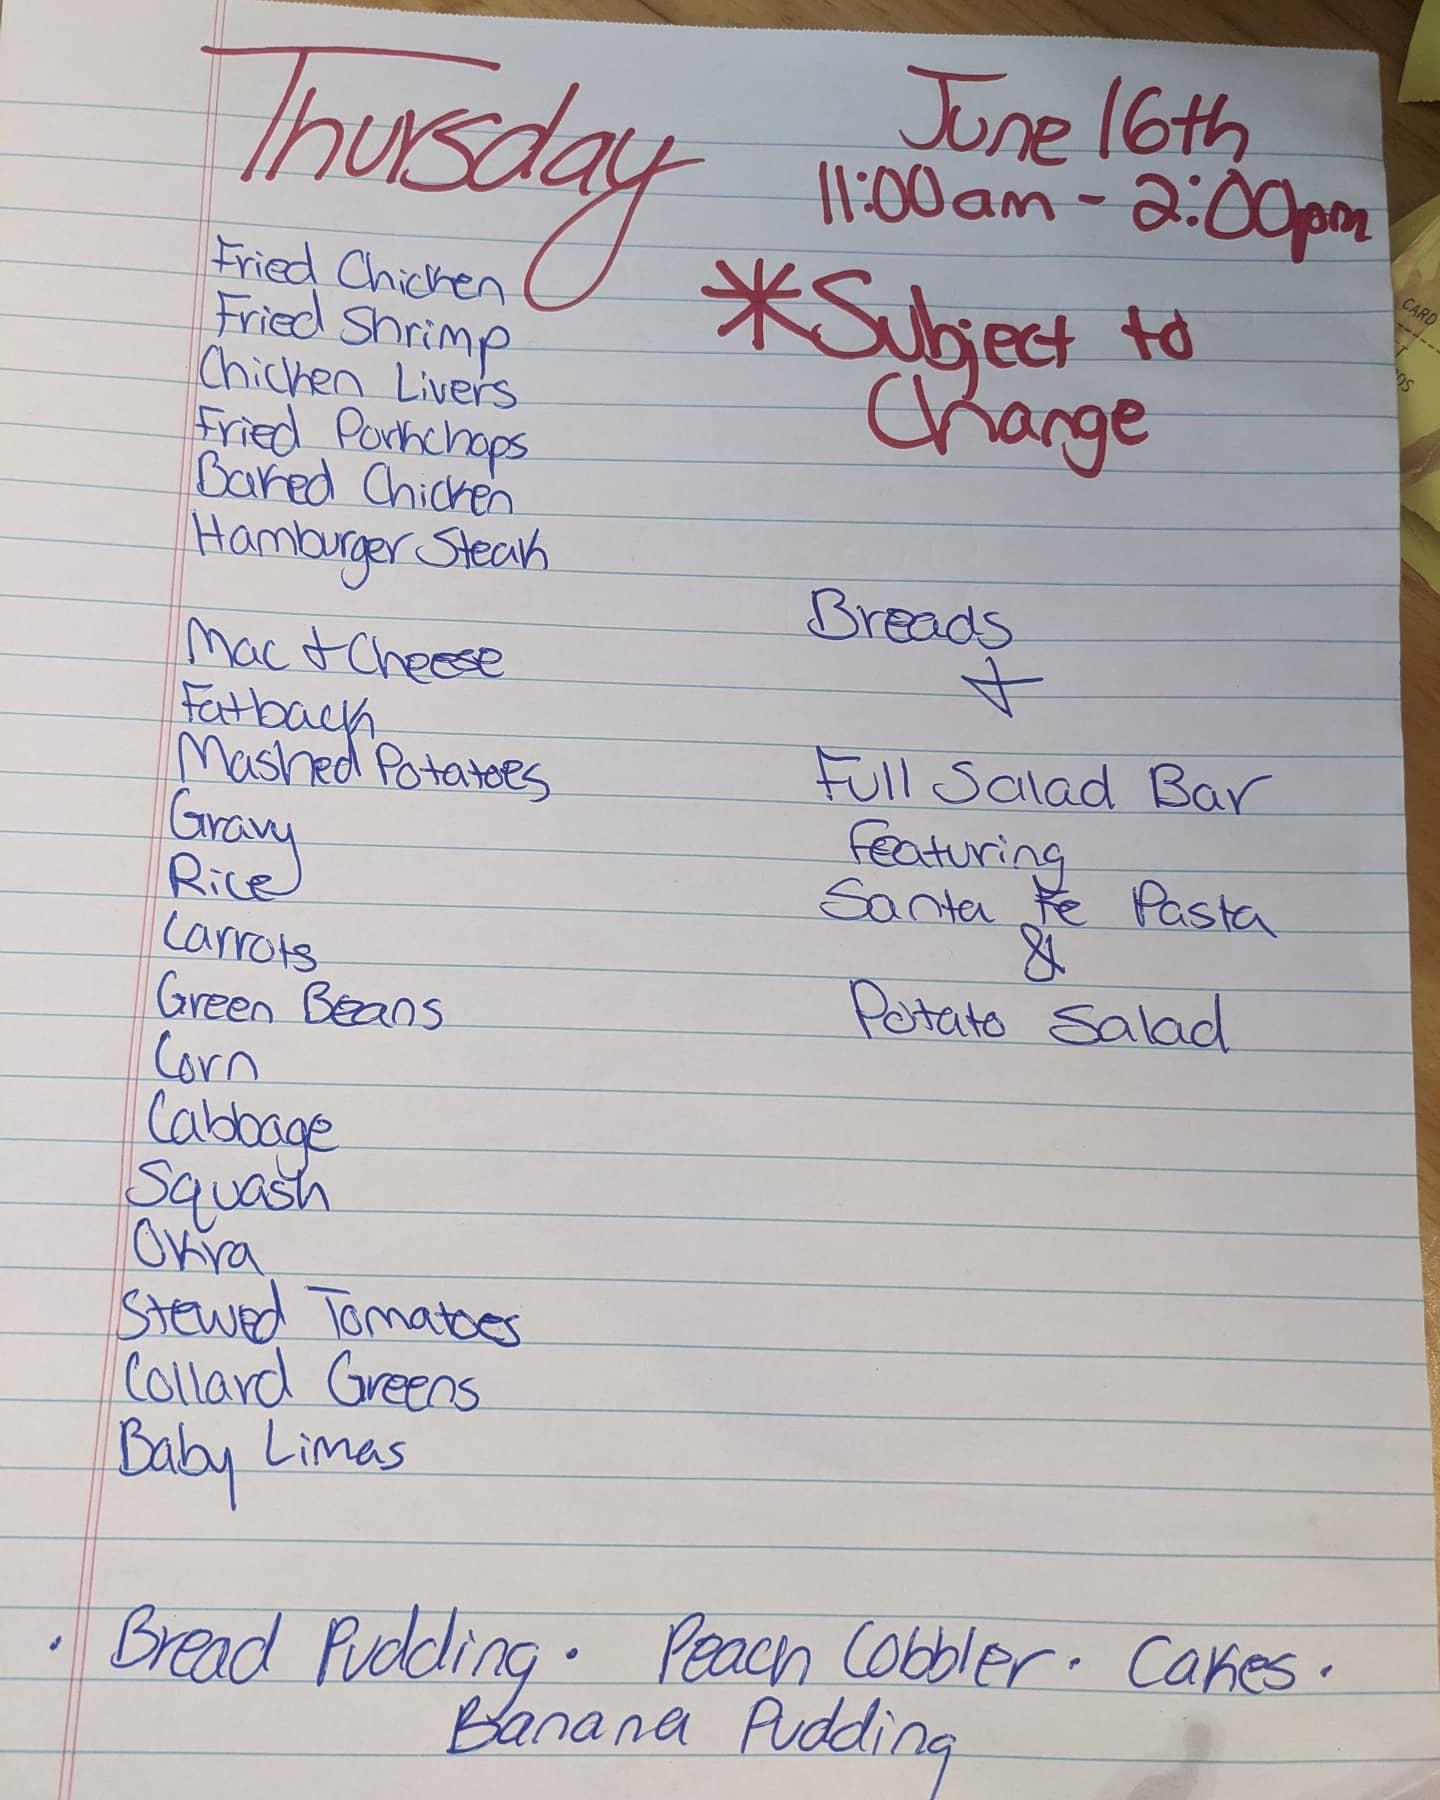 Thursday
June 16th
11:00am - 2:00pm
*Subject to
Change
Fried Chicken
Fried Shrimp
Chicken Livers
Fried Porkchops
Baked Chicken
Hamburger Steak
Mac + Cheese
Fatback
Mashed Potatoes
Gravy
Rice
Carrots
Green Beans
Corn
Cabbage
Squash
Okra
Stewed Tomatoes
Collard Greens
Baby Limas
Breads
+
Full Salad Bar
Featuring
Santa Fe Pasta
&
Potato Salad
· Bread Pudding · Peach Cobbler · Cakes ·
Banana Pudding
CARD